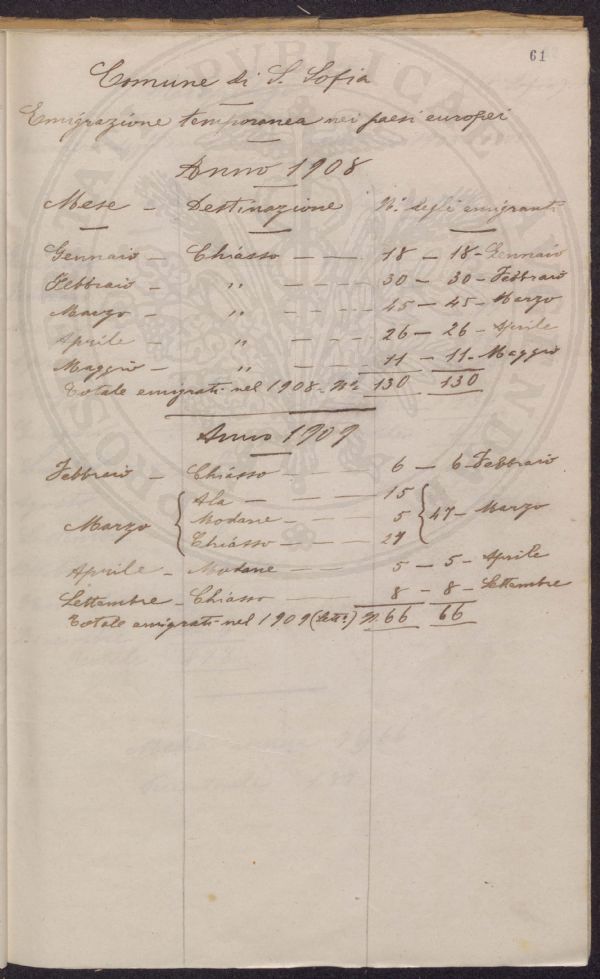 61
Comune di S. Sofia
Emigrazione temporanea nei paesi europei
Anno 1908
Mese - Destinazione N.° degli emigranti
Gennaio - Chiasso - - - 18 - 18 - Gennaio
Febbraio - " - - - - 30 - 30 - Febbraio
Marzo - " - - - - 45 - 45 - Marzo
Aprile - " - - - - 26 - 26 - Aprile
Maggio - " - - - - 11 - 11 - Maggio
Totale emigrati nel 1908 - N.° 130 130
Anno 1909
Febbraio - Chiasso - - - 6 - 6 - Febbraio
Ala - - - - 15
Marzo { Modane - - - 5 } 47 - Marzo
Chiasso - - - 27
Aprile - Modane - - - 5 - 5 - Aprile
Settembre - Chiasso - - 8 - 8 - Settembre
Totale emigrati nel 1909 (Sett.e) N. 66 66